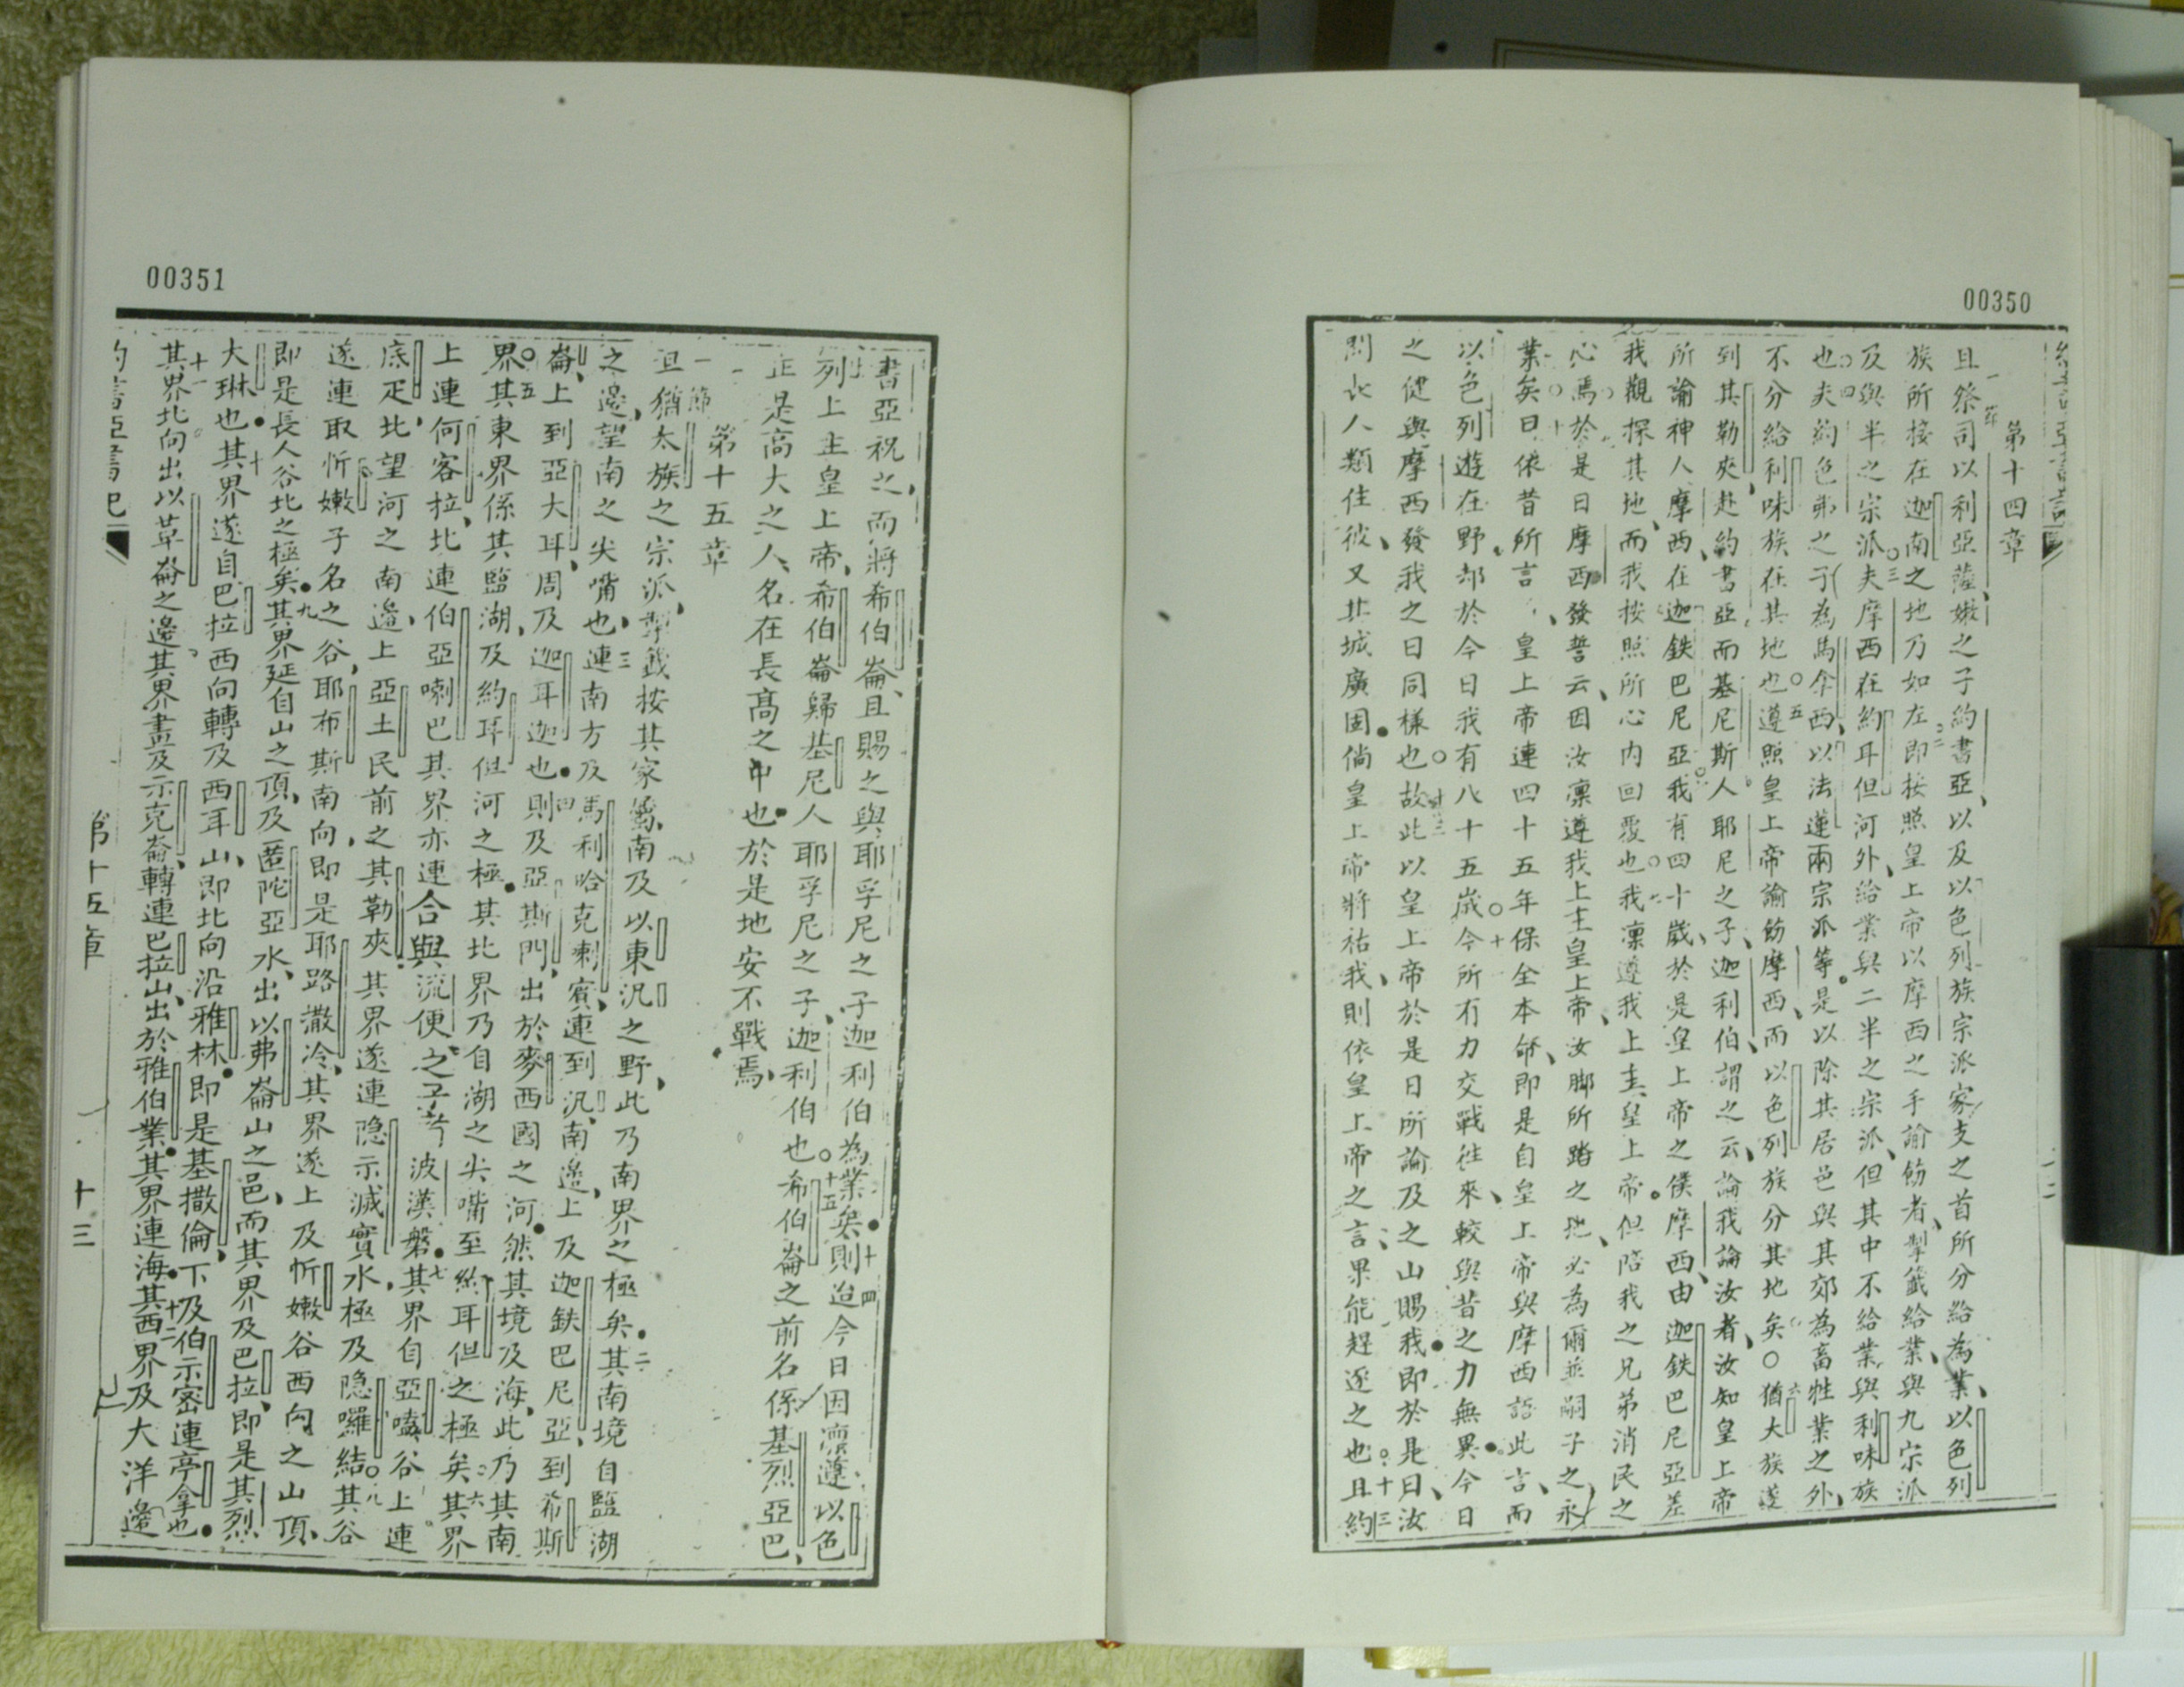 00350
第十四章
一節
且祭司以利亞薩嫩之子約書亞、以及以色列族宗派家支之首所分給為業、以色列
族所接在迦南之地乃如左、即按照皇上帝以摩西之手諭飭者、掣籤給業、與九宗派
及與半之宗派○三夫摩西在約耳但河外、給業與二半之宗派、但其中不給業與利味族
也○四夫約色弗之子為馬拿西、以法蓮兩宗派等。是以除其居邑與其郊為畜牲業之外、
不分給利味族在其地也○五遵照皇上帝諭飭摩西、而以色列族分其地矣○六猶大族遂
到其勒夾、赴約書亞而基尼斯人耶尼之子、迦利伯、謂之云、論我論汝者、汝知皇上帝
所諭神人摩西、在迦鉄巴尼亞○我有四十歲、於是皇上帝之僕摩西、由迦鉄巴尼亞差
我觀探其地、而我按照所心內回覆也○我凜遵我上主皇上帝。但陪我之兄弟消民之
心焉○於是日摩西發誓云、因汝凜遵我上主皇上帝、汝脚所踏之地、必為爾並嗣子之永
業矣○十日依昔所言、皇上帝連四十五年保全本命、即是自皇上帝與摩西語此言、而
以色列遊在野、却於今日我有八十五歲○十今所有力交戰往來、較與昔之力無異●今日
之健與摩西發我之日同樣也○故此以皇上帝於是日所論及之山賜我●即於是日、汝
聞長人類住彼、又其城廣固●倘皇上帝將祐我、則依皇上帝之言、果能趕逐之也。十三且約
00351
書亞祝之、而將希伯崙、且賜之與耶孚尼之子迦利伯為業矣●十四則迨今日因凜遵以色
列上主皇上帝、希伯崙歸基尼人耶孚尼之子、迦利伯也○十五希伯崙之前名係基烈亞巴、
正是高大之人、名在長高之中也●於是地安不戰焉、
第十五章
一節
且猶太族之宗派、掣籤按其家屬、南及以東汎之野、此乃南界之極矣●二其南境自鹽湖
之邊、望南之尖嘴也、三連南方及馬利哈克喇賓、連到汎、南邊、上及迦鉄巴尼亞、到希斯
崙、上到亞大耳、周及迦耳迦也●四則及亞斯門、出於麥西國之河●然其境及海、此乃其南
界○五其東界係其鹽湖、及約耳但河之極●其北界乃自湖之尖嘴至約耳但之極矣○六其界
上連何客拉、北連伯亞喇巴其界亦連合與流便之子、波漢磐●七其界自亞嗑谷上連
底疋、北望河之南邊、上亞土民前之其勒夾、其界遂連隐示滅實水、極及隐囉結○八其谷
遂連取忻嫩子名之谷、耶布斯南向、即是耶路撒冷、其界遂上及忻嫩谷西向之山頂、
即是長人谷北之極矣●九其界延自山之頂、及匿陀亞水、出以弗崙山之邑、而其界及巴拉、即是其烈
大琳也●十其界遂自巴拉西向轉及西耳山、即北向沿雅林●即是基撒倫、下及伯示密連亭拿也●
十一其界北向出以革崙之邊、其界畫及示克崙、轉連巴拉山、出於雅伯業●其界連海●十二其西界及大洋邊
約書亞書記
第十五章
十三